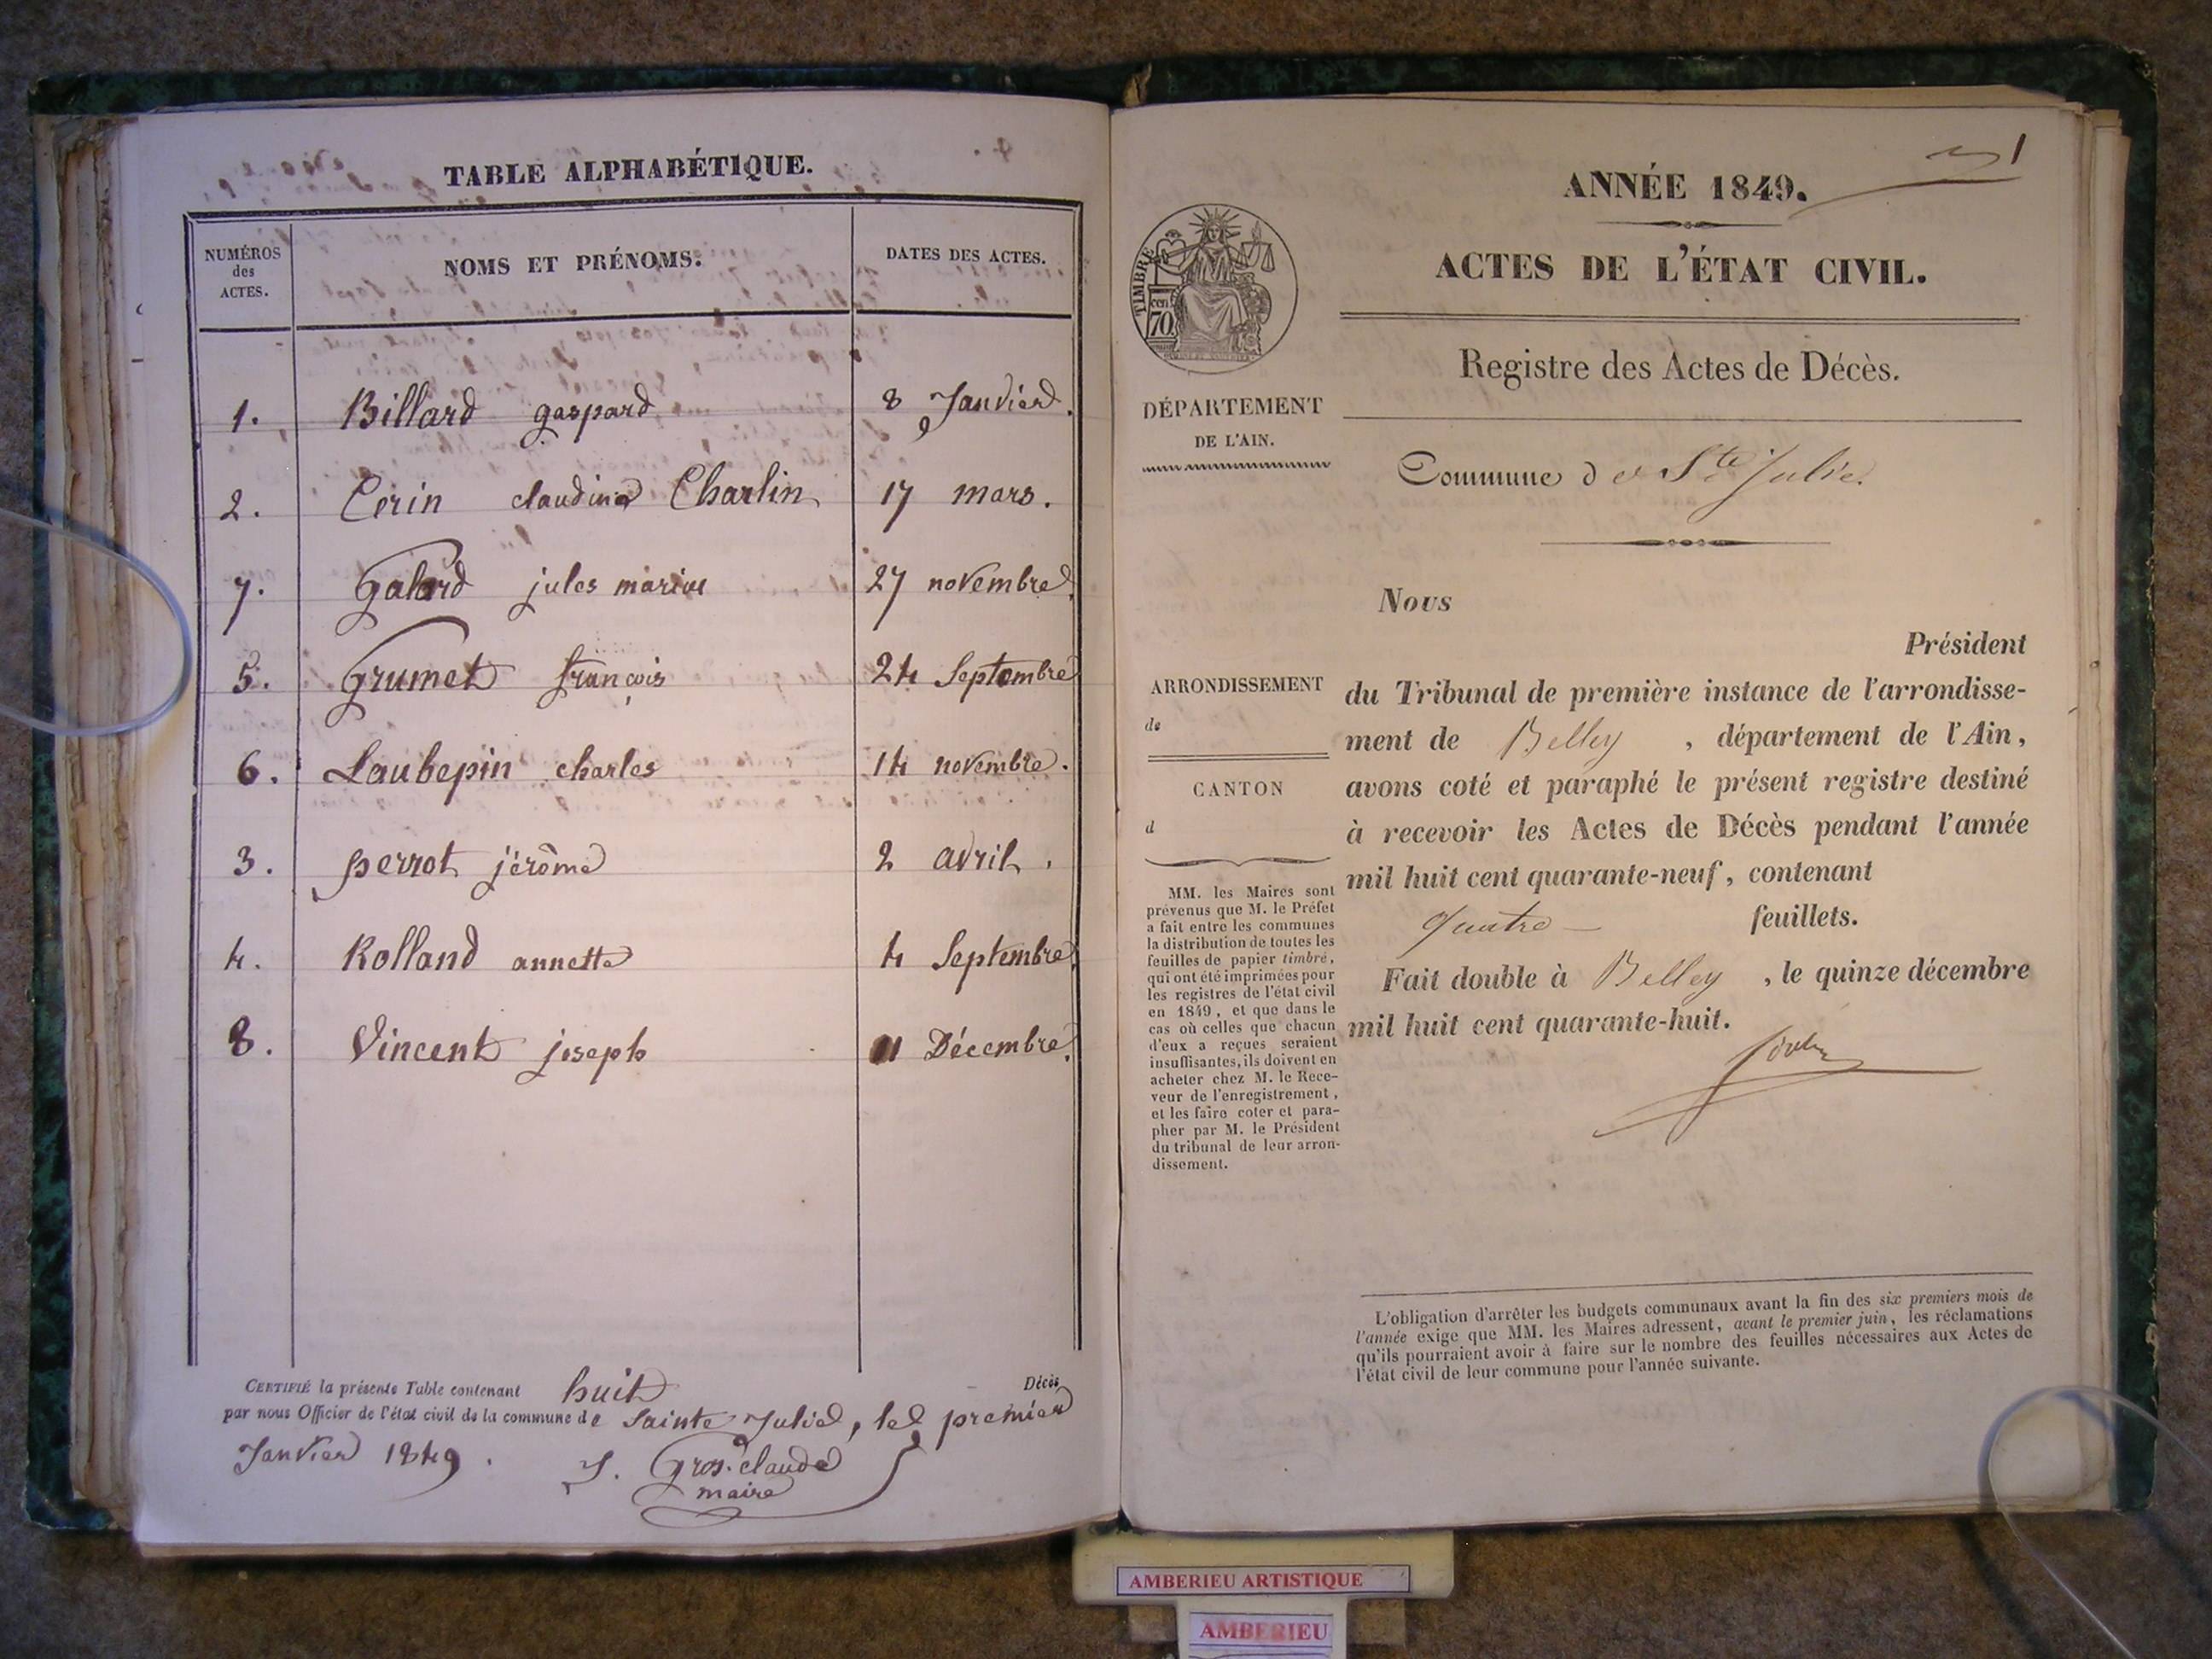 TABLE ALPHABÉTIQUE.
NUMÉROS des ACTES.
NOMS ET PRÉNOMS.
DATES DES ACTES.
1. Billard gaspard 8 Janvier.
2. Cerin claudine Charlin 17 mars.
7. Galard jules marius 27 novembre.
5. Grumet françois 24 Septembre
6. Laubepin charles 14 novembre.
3. perrot jérôme 2 avril.
4. Rolland annette 4 Septembre
8. Vincent joseph 11 Décembre.
CERTIFIÉ la présente Table contenant huit Décès
par nous Officier de l'état civil de la commune de Sainte Julie, le premier
Janvier 1849.
J. Gros-claude
maire
1
ANNÉE 1849.
ACTES DE L'ÉTAT CIVIL.
TIMBRE
70 cen
Registre des Actes de Décès.
DÉPARTEMENT
DE L'AIN.
Commune de Ste Julie.
Nous
Président
du Tribunal de première instance de l'arrondisse-
ment de Belley, département de l'Ain,
avons coté et paraphé le présent registre destiné
à recevoir les Actes de Décès pendant l'année
mil huit cent quarante-neuf, contenant
quatre feuillets.
Fait double à Belley, le quinze décembre
mil huit cent quarante-huit.
ARRONDISSEMENT
de
CANTON
d
MM. les Maires sont
prévenus que M. le Préfet
a fait entre les communes
la distribution de toutes les
feuilles de papier timbré,
qui ont été imprimées pour
les registres de l'état civil
en 1849, et que dans le
cas où celles que chacun
d'eux a reçues seraient
insuffisantes, ils doivent en
acheter chez M. le Rece-
veur de l'enregistrement,
et les faire coter et para-
pher par M. le Président
du tribunal de leur arron-
dissement.
L'obligation d'arrêter les budgets communaux avant la fin des six premiers mois de
l'année exige que MM. les Maires adressent, avant le premier juin, les réclamations
qu'ils pourraient avoir à faire sur le nombre des feuilles nécessaires aux Actes de
l'état civil de leur commune pour l'année suivante.
AMBERIEU ARTISTIQUE
AMBERIEU